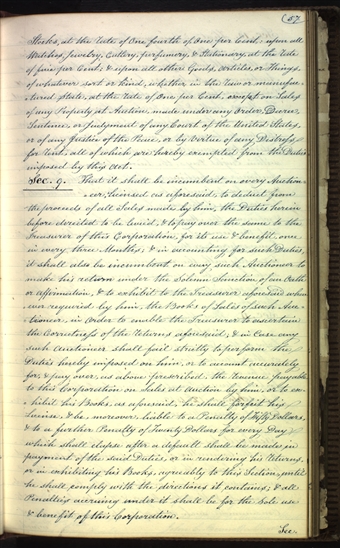 57
Stocks, at the Rate of One fourth of One per Cent; upon all
Watches, Jewelry, Cutlery, perfumery, & Stationary, at the Rate
of four per Cent; & upon all other Goods, Articles, or Things,
of whatever sort or kind, whether in the Raw or manufac-
-tured State, at the Rate of One per Cent, except on Sales
of any Property at Auction, made under any Order, Decree,
Sentence, or Judgment of any Court of the United States,
or of any Justice of the Peace, or by virtue of any Distress
for Rent, all of which are hereby exempted from the Duties
imposed by this Act.
Sec. 9. That it shall be incumbent on every Auction-
-eer, licensed as aforesaid, to deduct from
the proceeds of all Sales made by him, the Duties herein
before directed to be levied, & to pay over the same to the
Treasurer of this Corporation, for its use & benefit, once
in every three Months; & in accounting for such Duties,
it shall also be incumbent on every such Auctioneer to
make his return under the Solemn Sanction of an Oath
or affirmation, & to exhibit to the Treasurer aforesaid when-
ever required by him, the Book of Sales of such Auc-
tioneer, in Order to enable the Treasurer to ascertain
the Correctness of the Returns aforesaid; & in Case any
such Auctioneer shall fail strictly to perform the
Duties hereby imposed on him, or to account accurately
for, & pay over, as above prescribed, the Revenue payable
to this Corporation on Sales at Auction by him, or to ex-
hibit his Books, as aforesaid, he shall forfeit his
License, & be, moreover, liable to a Penalty of Fifty Dollars,
& to a further Penalty of Twenty Dollars for every Day
which shall elapse after a default shall be made in
payment of the said Duties, or in rendering his Returns,
or in exhibiting his Books, agreeably to this Section, until
he shall comply with the directions it contains; & all
Penalties accruing under it shall be for the Sole use
& benefit of this Corporation.
Sec.